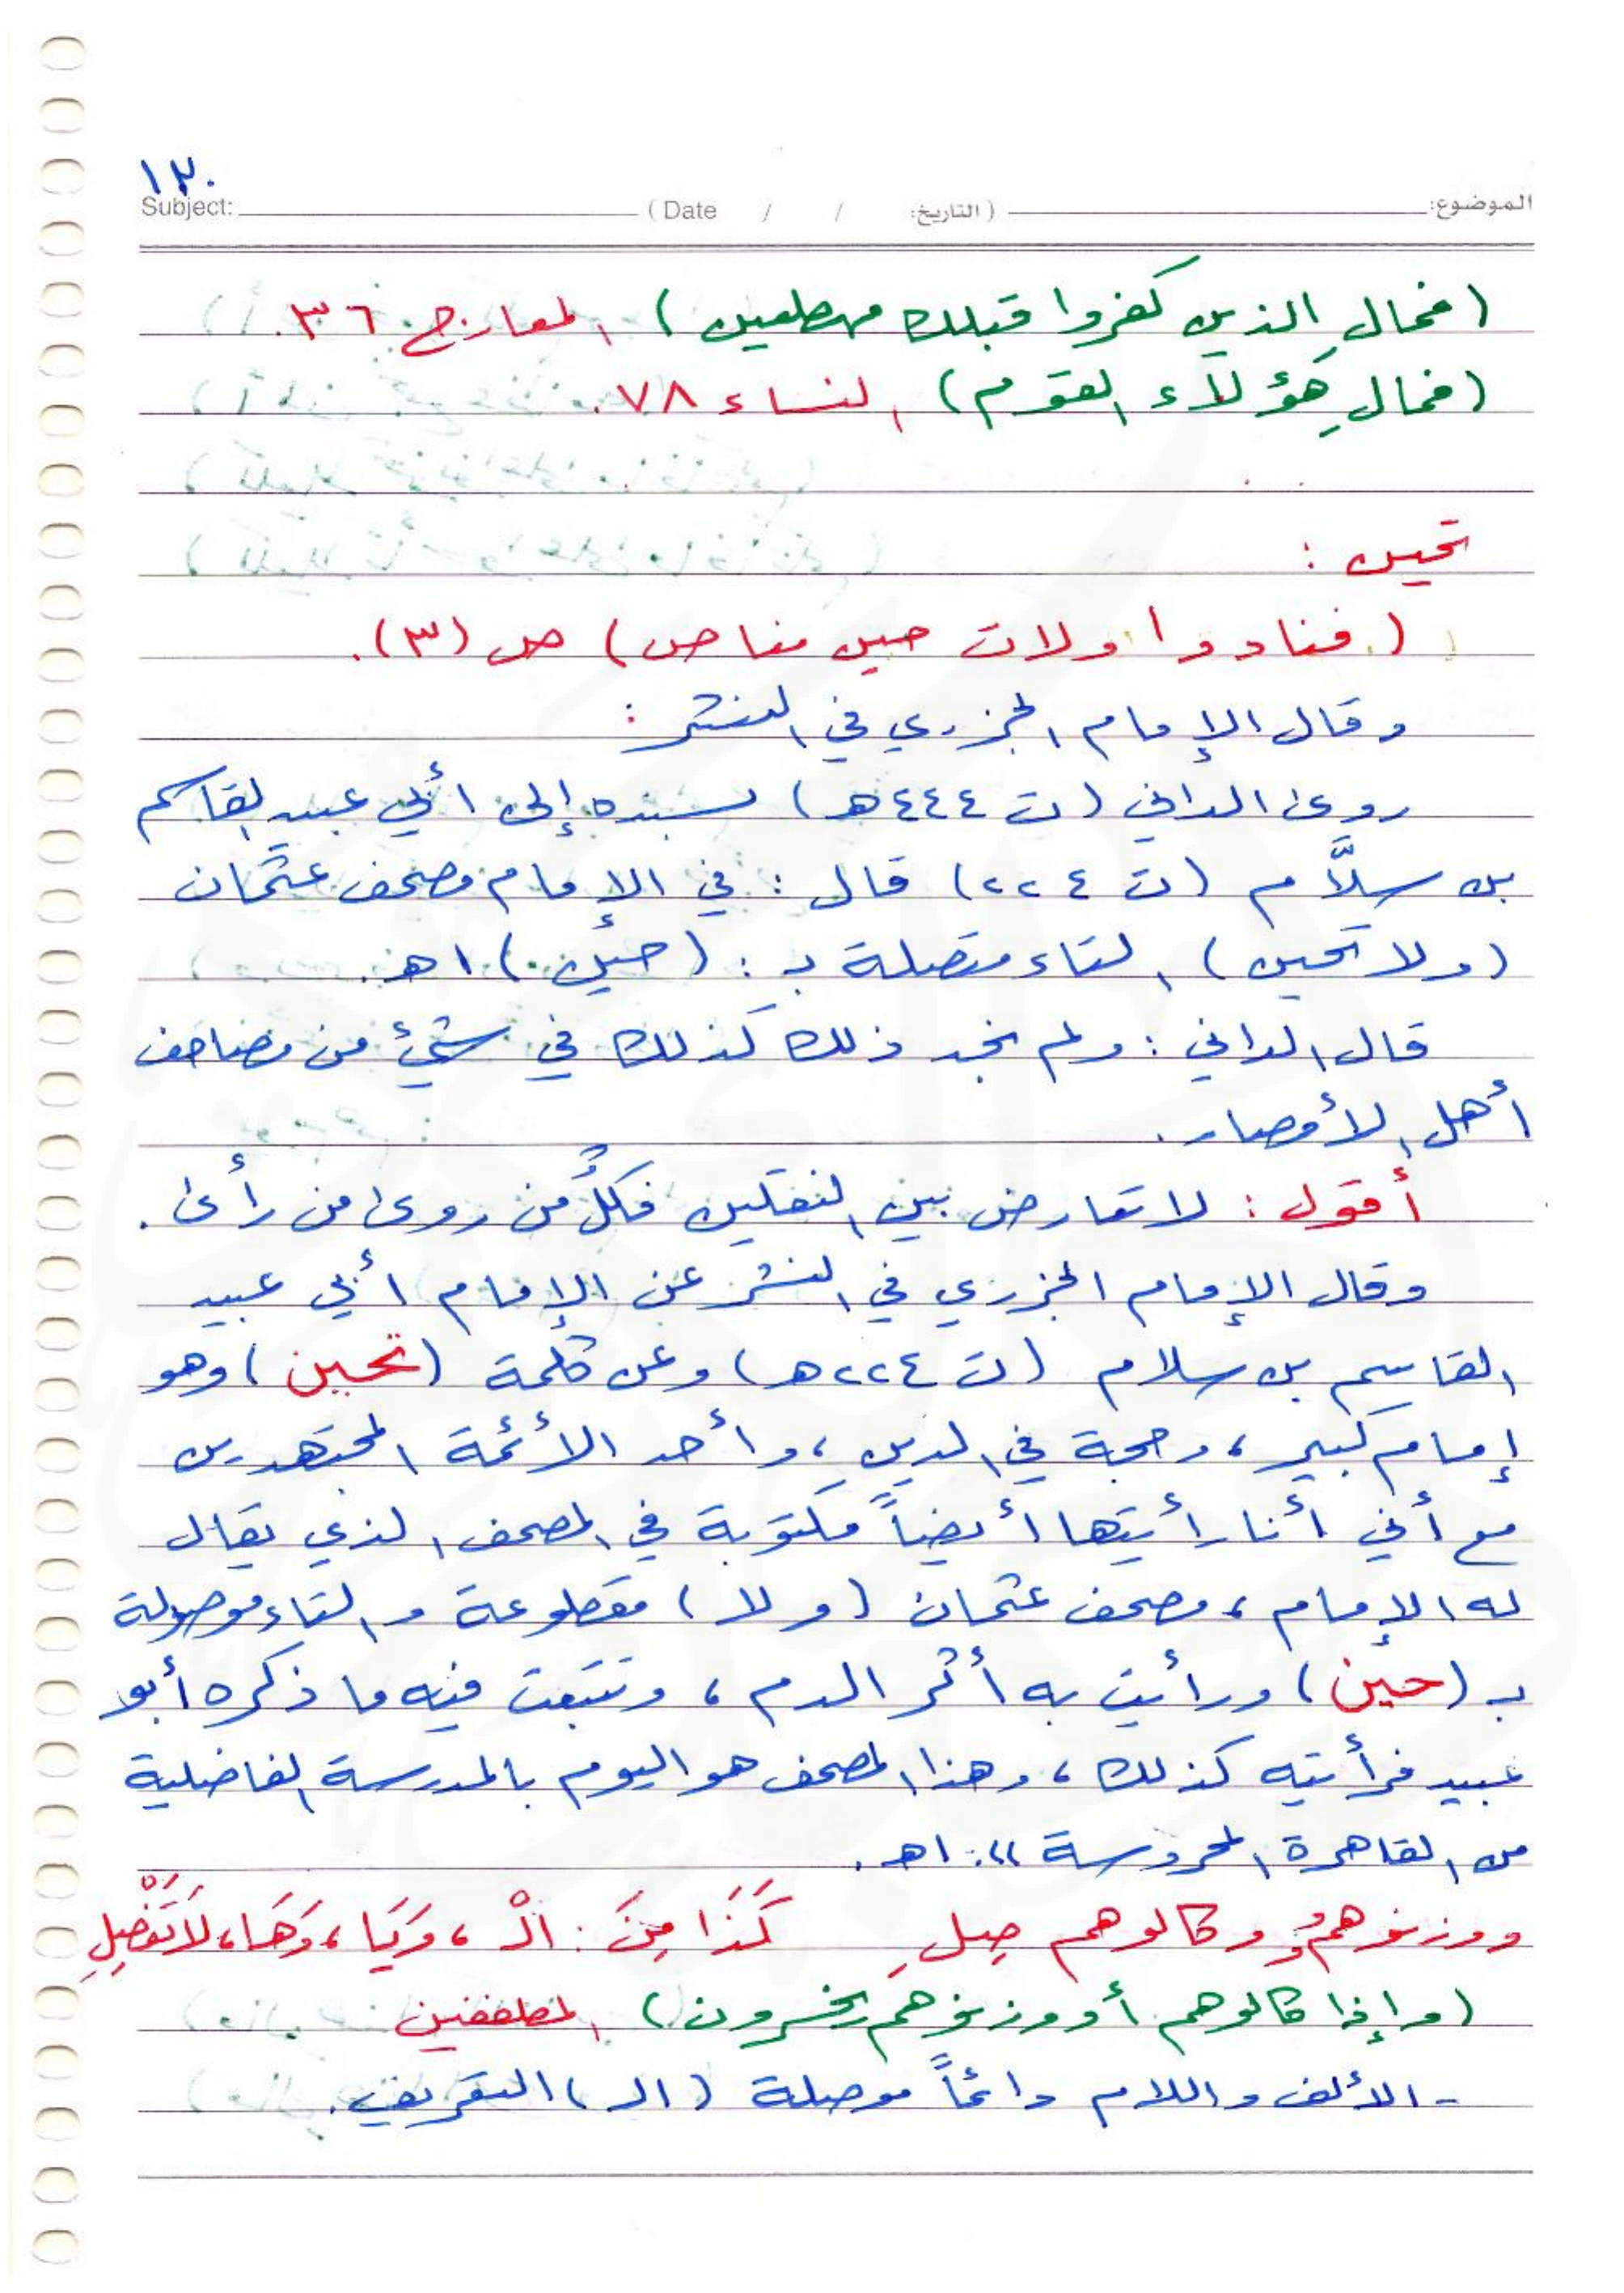 ١٣٠
الموضوع: (التاريخ: / / Date ) Subject:
(فمال الذين كفروا قبلك مهطعين) المعارج ٣٦.
(فمال هؤلاء القوم) النساء ٧٨.
تحين :
(فنادوا ولات حين مناص) ص (٣).
وقال الإمام الجزري في النشر :
روى الداني (ت ٤٤٤هـ) بسنده إلى أبي عبيد القاسم
بن سلَّام (ت ٢٢٤) قال : في الإمام مصحف عثمان
(ولا تحين) التاء متصلة بـ : (حين) اهـ.
قال الداني : ولم نجد ذلك كذلك في شيء من مصاحف
أهل الأمصار.
أقول : لا تعارض بين النقلين فكلٌ من روى من رأى.
وقال الإمام الجزري في النشر عن الإمام أبي عبيد
القاسم بن سلام (ت ٢٢٤هـ) وعن كلمة (تحين) وهو
إمام كبير، وحجة في الدين، وأحد الأئمة المجتهدين
مع أني أنا رأيتها أيضاً مكتوبة في المصحف الذي يقال
له الإمام، مصحف عثمان (ولا) مقطوعة والتاء موصولة
بـ (حين) ورأيت به أثر الدم، وتتبعت فيه ما ذكره أبو
عبيد فرأيته كذلك، وهذا المصحف هو اليوم بالمدرسة الفاضلية
من القاهرة المحروسة )). اهـ.
ووزنوهمُ وكالوهم صِلِ كَذَا مِنَ : الْ، وَيَا، وَهَا، لَا تَفْصِلِ
(وإذا كالوهم أو وزنوهم يخسرون) المطففين
- الألف واللام دائماً موصلة (الـ) التعريف.